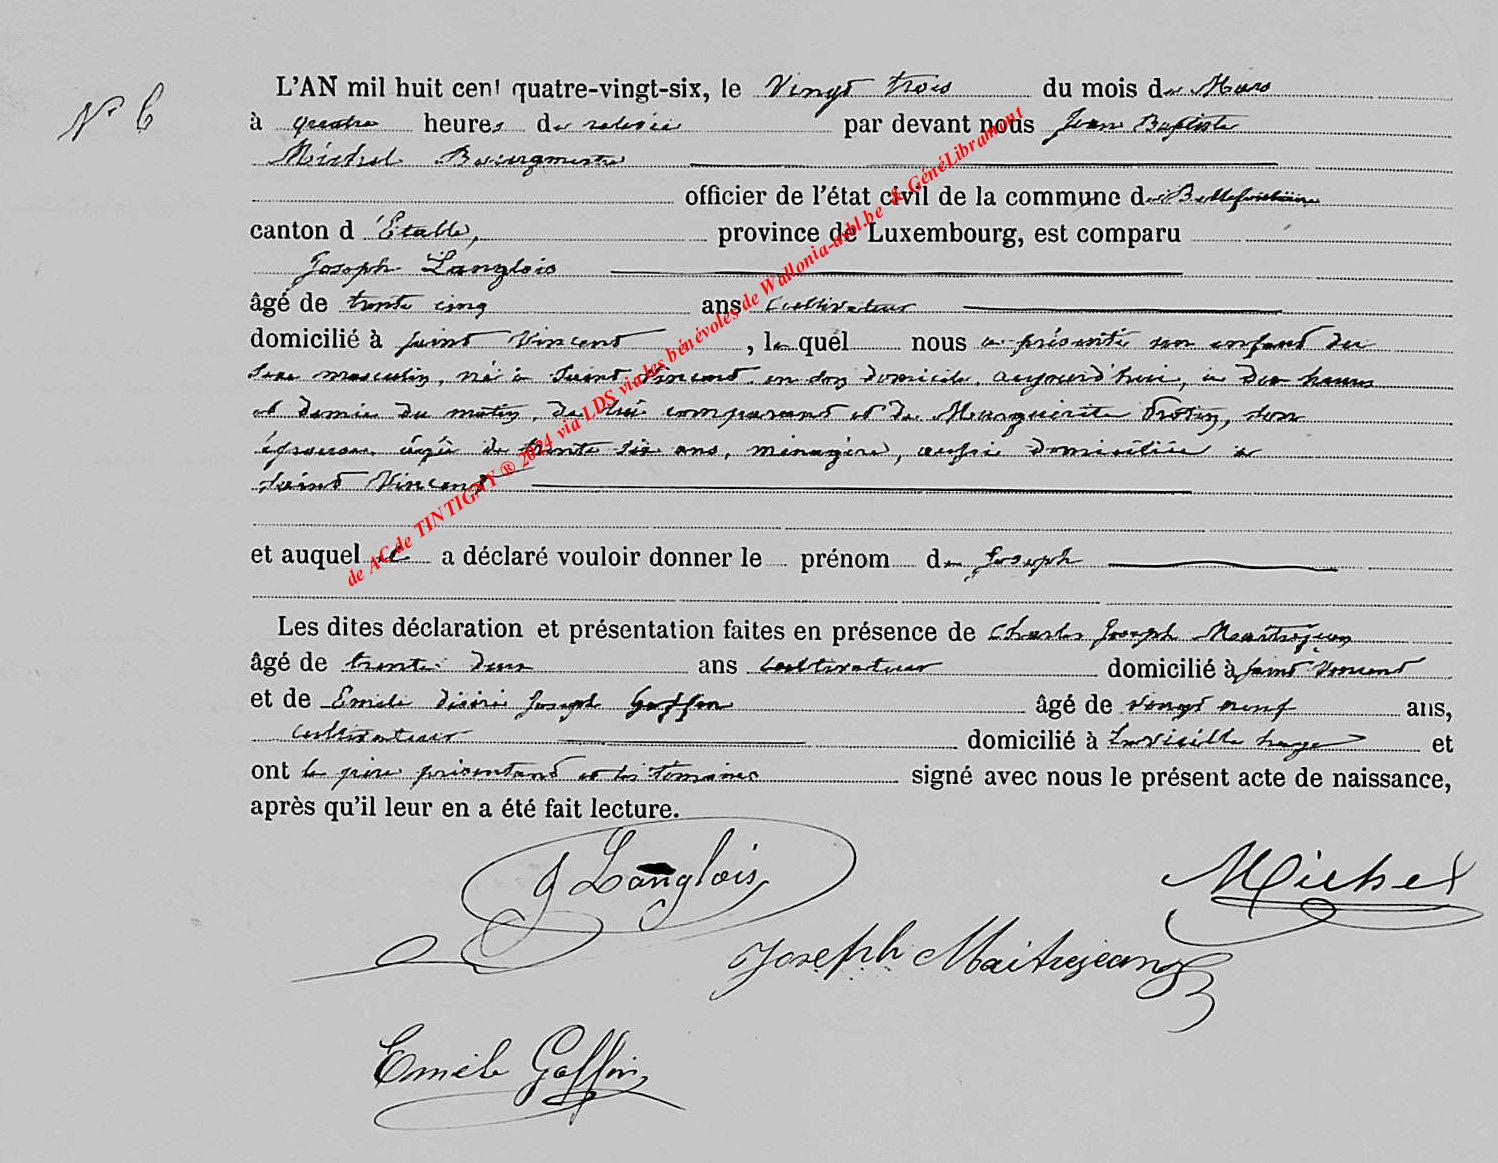 N° 6
L'AN mil huit cent quatre-vingt-six, le Vingt trois du mois de Mars
à quatre heures de relevée par devant nous Jean Baptiste
Michel Bourgmestre
officier de l'état civil de la commune de Bellefontaine
canton d'Etalle, province de Luxembourg, est comparu
Joseph Langlois
âgé de trente cinq ans cultivateur
domicilié à Saint Vincent, lequel nous a présenté un enfant du
sexe masculin, né à Saint Vincent en son domicile, aujourd'hui, à dix heures
et demie du matin, de lui comparant et de Marguerite, son
épouse, âgée de trente six ans, ménagère, aussi domiciliée à
Saint Vincent
et auquel il a déclaré vouloir donner le prénom de Joseph
Les dites déclaration et présentation faites en présence de Charles Joseph Maitrejean
âgé de trente deux ans cultivateur domicilié à Saint Vincent
et de Emile Désiré Joseph Goffin âgé de vingt neuf ans,
cultivateur domicilié à Lavieille haye et
ont le père présentant et les témoins signé avec nous le présent acte de naissance,
après qu'il leur en a été fait lecture.
J Langlois
Michel
Joseph Maitrejean
Emile Goffin
de AC de TINTIGNY ® 2024 via LDS via les bénévoles de Wallonia-asbl.be & GénéLibramont